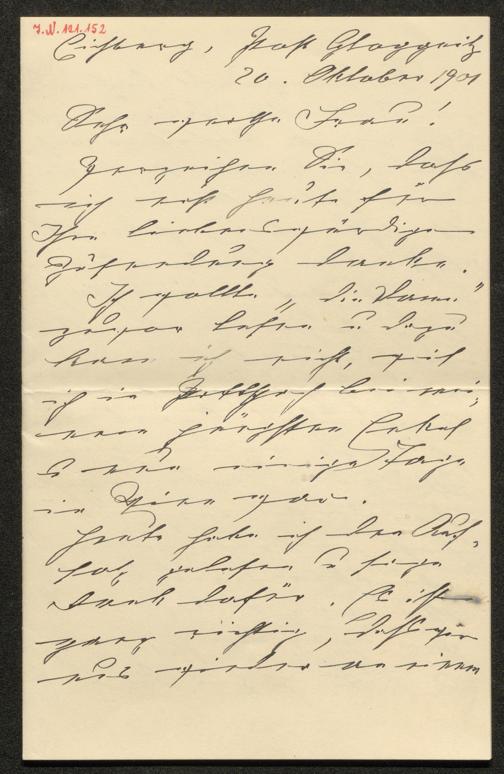 J.N. 121.152
Eichberg, Post Gloggnitz
20. Oktober 1901
Sehr werthe Frau!
Verzeihen Sie, dass
ich erst heute für
Ihre liebenswürdige
Zusendung danke.
Ich wollte „die Dame“
zuvor lesen u dazu
kam ich nicht, weil
ich in bei mei-
nem jüngsten Enkel
u nur einige Tage
in Wien war.
Heute habe ich den Auf-
satz gelesen u sage
Dank dafür. Es ist
ganz richtig, dass wir
uns wieder an einem